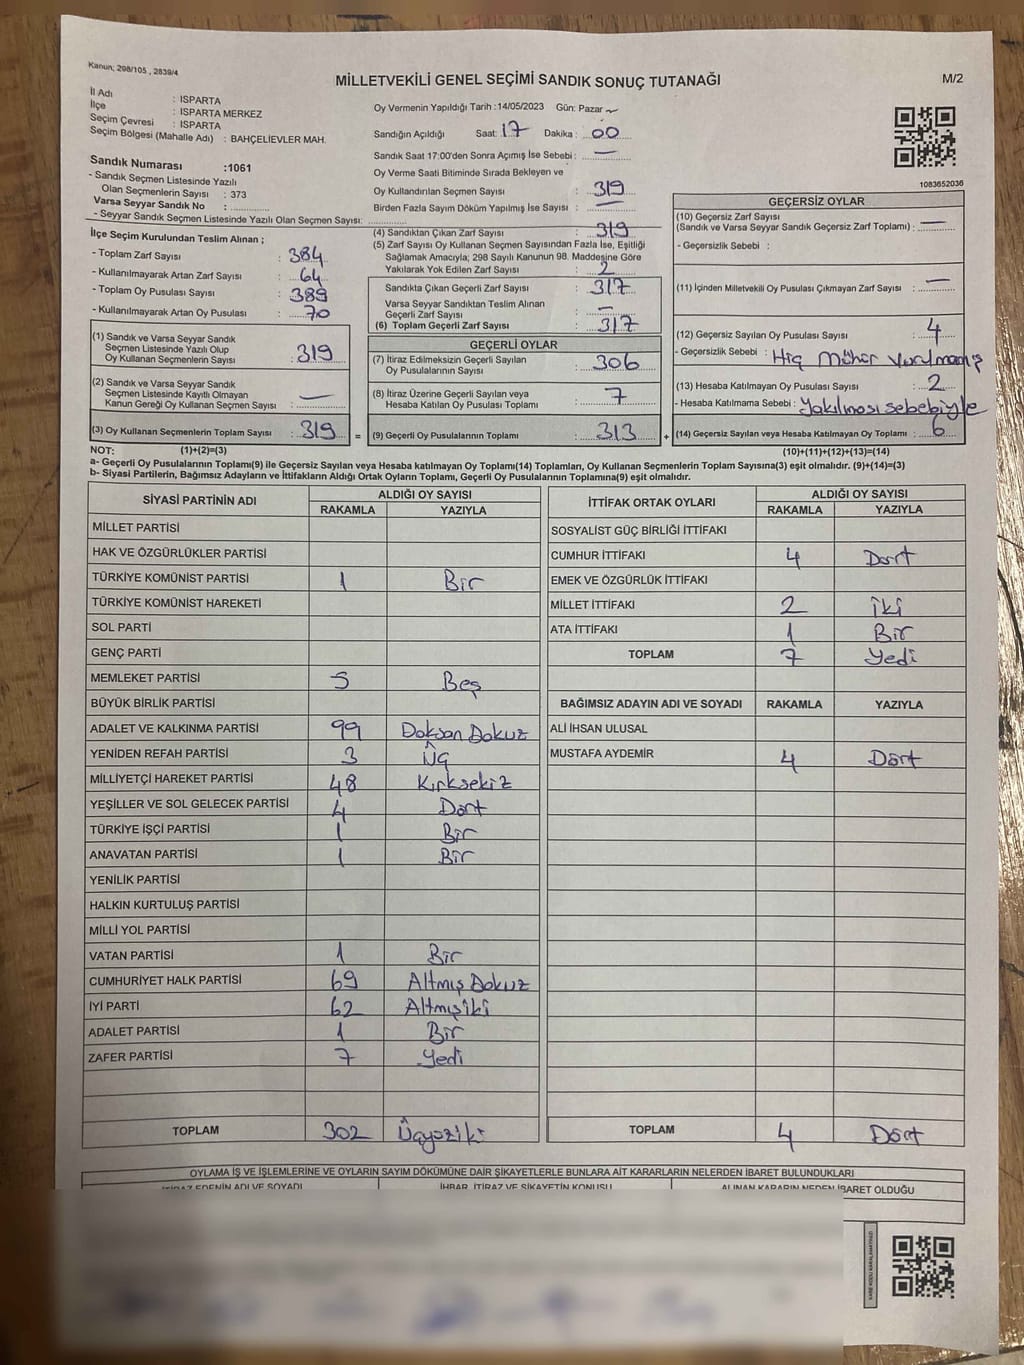 Kanun; 298/105 , 2839/4
MİLLETVEKİLİ GENEL SEÇİMİ SANDIK SONUÇ TUTANAĞI
M/2
İl Adı : ISPARTA
İlçe : ISPARTA MERKEZ
Seçim Çevresi : ISPARTA
Seçim Bölgesi (Mahalle Adı) : BAHÇELİEVLER MAH.
Sandık Numarası :1061
- Sandık Seçmen Listesinde Yazılı
Olan Seçmenlerin Sayısı : 373
Varsa Seyyar Sandık No : ..............
- Seyyar Sandık Seçmen Listesinde Yazılı Olan Seçmen Sayısı: ..............
İlçe Seçim Kurulundan Teslim Alınan ;
- Toplam Zarf Sayısı : 384
- Kullanılmayarak Artan Zarf Sayısı : 64
- Toplam Oy Pusulası Sayısı : 389
- Kullanılmayarak Artan Oy Pusulası : 70
(1) Sandık ve Varsa Seyyar Sandık
Seçmen Listesinde Yazılı Olup
Oy Kullanan Seçmenlerin Sayısı : 319
(2) Sandık ve Varsa Seyyar Sandık
Seçmen Listesinde Kayıtlı Olmayan
Kanun Gereği Oy Kullanan Seçmen Sayısı : —
(3) Oy Kullanan Seçmenlerin Toplam Sayısı : 319 =
Oy Vermenin Yapıldığı Tarih :14/05/2023 Gün: Pazar
Sandığın Açıldığı Saat: 17 Dakika : 00
Sandık Saat 17:00'den Sonra Açımış İse Sebebi : —
Oy Verme Saati Bitiminde Sırada Bekleyen ve
Oy Kullandırılan Seçmen Sayısı : 319
Birden Fazla Sayım Döküm Yapılmış İse Sayısı : —
(4) Sandıktan Çıkan Zarf Sayısı : 319
(5) Zarf Sayısı Oy Kullanan Seçmen Sayısından Fazla İse, Eşitliği
Sağlamak Amacıyla; 298 Sayılı Kanunun 98. Maddesine Göre
Yakılarak Yok Edilen Zarf Sayısı : 2
Sandıkta Çıkan Geçerli Zarf Sayısı : 317
Varsa Seyyar Sandıktan Teslim Alınan
Geçerli Zarf Sayısı : —
(6) Toplam Geçerli Zarf Sayısı : 317
GEÇERLİ OYLAR
(7) İtiraz Edilmeksizin Geçerli Sayılan
Oy Pusulalarının Sayısı : 306
(8) İtiraz Üzerine Geçerli Sayılan veya
Hesaba Katılan Oy Pusulası Toplamı : 7
(9) Geçerli Oy Pusulalarının Toplamı : 313 +
1083652036
GEÇERSİZ OYLAR
(10) Geçersiz Zarf Sayısı
(Sandık ve Varsa Seyyar Sandık Geçersiz Zarf Toplamı) : —
- Geçersizlik Sebebi :
(11) İçinden Milletvekili Oy Pusulası Çıkmayan Zarf Sayısı : —
(12) Geçersiz Sayılan Oy Pusulası Sayısı : 4
- Geçersizlik Sebebi : Hiç Mühür Vurulmamış
(13) Hesaba Katılmayan Oy Pusulası Sayısı : 2
- Hesaba Katılmama Sebebi : Yakılması sebebiyle
(14) Geçersiz Sayılan veya Hesaba Katılmayan Oy Toplamı : 6
NOT: (1)+(2)=(3) (10)+(11)+(12)+(13)=(14)
a- Geçerli Oy Pusulalarının Toplamı(9) ile Geçersiz Sayılan veya Hesaba katılmayan Oy Toplamı(14) Toplamları, Oy Kullanan Seçmenlerin Toplam Sayısına(3) eşit olmalıdır. (9)+(14)=(3)
b- Siyasi Partilerin, Bağımsız Adayların ve İttifakların Aldığı Ortak Oyların Toplamı, Geçerli Oy Pusulalarının Toplamına(9) eşit olmalıdır.
SİYASİ PARTİNİN ADI ALDIĞI OY SAYISI
RAKAMLA YAZIYLA
MİLLET PARTİSİ
HAK VE ÖZGÜRLÜKLER PARTİSİ
TÜRKİYE KOMÜNİST PARTİSİ 1 Bir
TÜRKİYE KOMÜNİST HAREKETİ
SOL PARTİ
GENÇ PARTİ
MEMLEKET PARTİSİ 5 Beş
BÜYÜK BİRLİK PARTİSİ
ADALET VE KALKINMA PARTİSİ 99 Doksan Dokuz
YENİDEN REFAH PARTİSİ 3 Üç
MİLLİYETÇİ HAREKET PARTİSİ 48 Kırksekiz
YEŞİLLER VE SOL GELECEK PARTİSİ 4 Dört
TÜRKİYE İŞÇİ PARTİSİ 1 Bir
ANAVATAN PARTİSİ 1 Bir
YENİLİK PARTİSİ
HALKIN KURTULUŞ PARTİSİ
MİLLİ YOL PARTİSİ
VATAN PARTİSİ 1 Bir
CUMHURİYET HALK PARTİSİ 69 Altmış Dokuz
İYİ PARTİ 62 Altmışiki
ADALET PARTİSİ 1 Bir
ZAFER PARTİSİ 7 Yedi
TOPLAM 302 Üçyüziki
İTTİFAK ORTAK OYLARI ALDIĞI OY SAYISI
RAKAMLA YAZIYLA
SOSYALİST GÜÇ BİRLİĞİ İTTİFAKI
CUMHUR İTTİFAKI 4 Dört
EMEK VE ÖZGÜRLÜK İTTİFAKI
MİLLET İTTİFAKI 2 iki
ATA İTTİFAKI 1 Bir
TOPLAM 7 Yedi
BAĞIMSIZ ADAYIN ADI VE SOYADI RAKAMLA YAZIYLA
ALİ İHSAN ULUSAL
MUSTAFA AYDEMİR 4 Dört
TOPLAM 4 Dört
OYLAMA İŞ VE İŞLEMLERİNE VE OYLARIN SAYIM DÖKÜMÜNE DAİR ŞİKAYETLERLE BUNLARA AİT KARARLARIN NELERDEN İBARET BULUNDUKLARI
İTİRAZ EDENİN ADI VE SOYADI İHBAR, İTİRAZ VE ŞİKAYETİN KONUSU ALINAN KARARIN NEDEN İBARET OLDUĞU